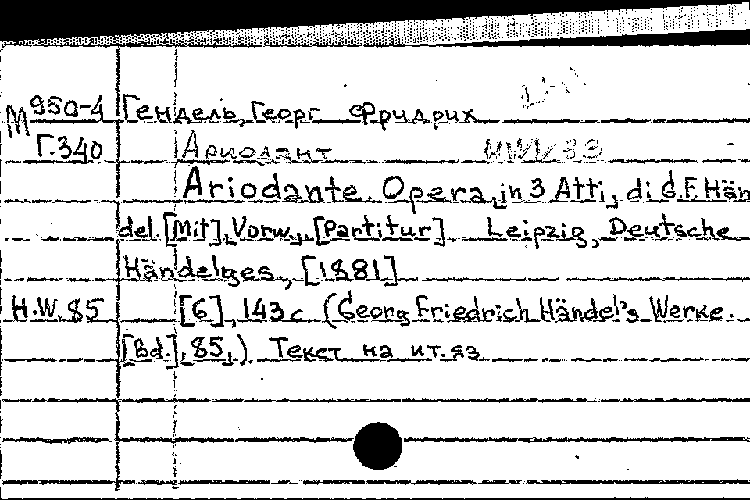 М 950-4 Гендель, Георг Фридрих
Г.340 Ариодант HWV 33
Ariodante. Opera in 3 Atti, di G.F. Hän
del. [Mit] Vorw., [Partitur] Leipzig, Deutsche
Händelges, [1881]
H.W. 85 [6], 143 с (Georg Friedrich Händel's Werke.
[Bd.], 85,) Текст на ит. яз